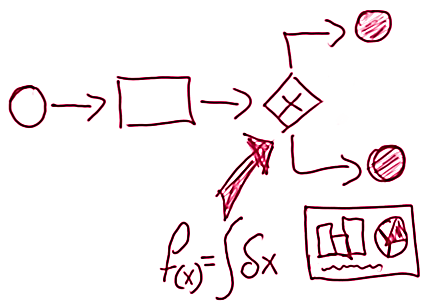 f(x)=∫δx